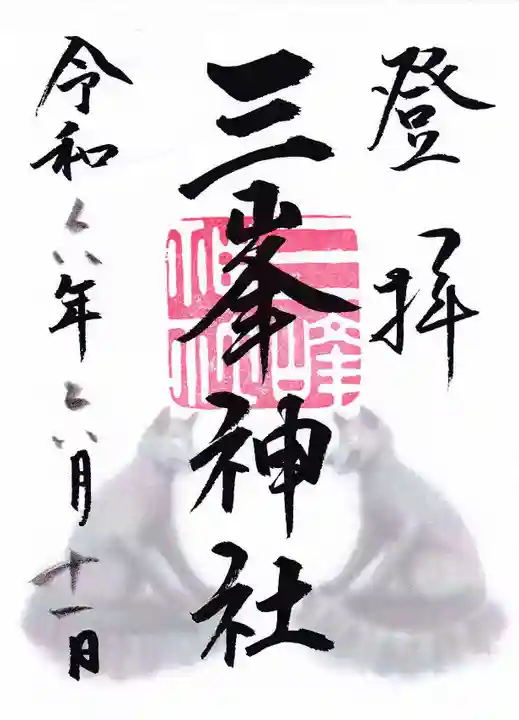 登拝
三峯神社
三峰神社
令和六年六月十一日